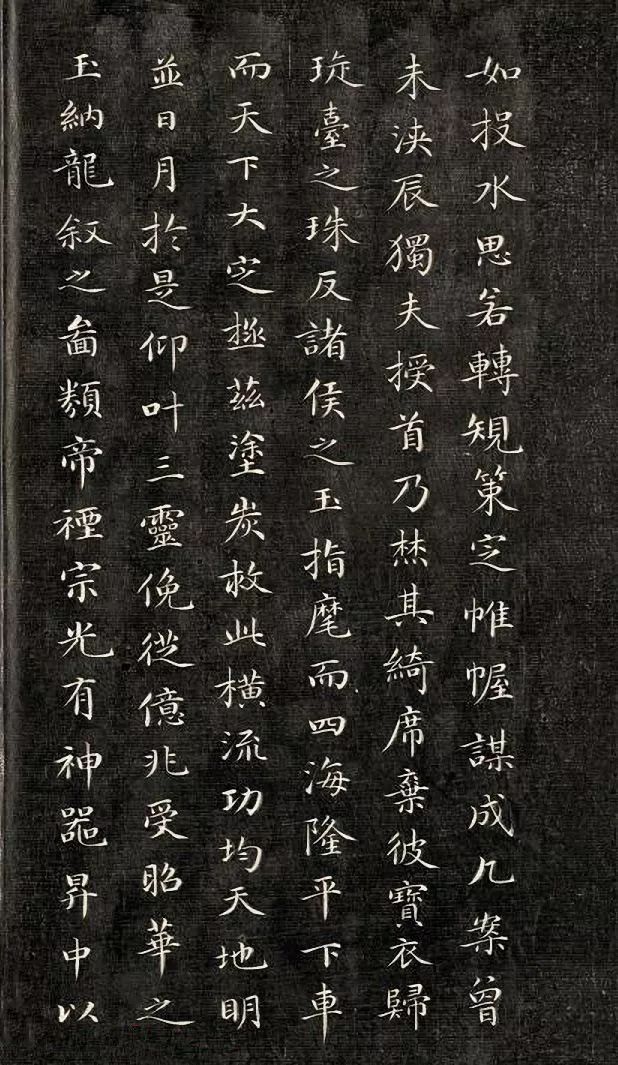 如投水思若轉規策定帷幄謀成几案曾
未浹辰獨夫授首乃焚其綺席棄彼寶衣歸
琁臺之珠反諸侯之玉指麾而四海隆平下車
而天下大定拯茲塗炭救此橫流功均天地明
並日月於是仰叶三靈俛從億兆受昭華之
玉納龍敘之啚類帝禋宗光有神器昇中以